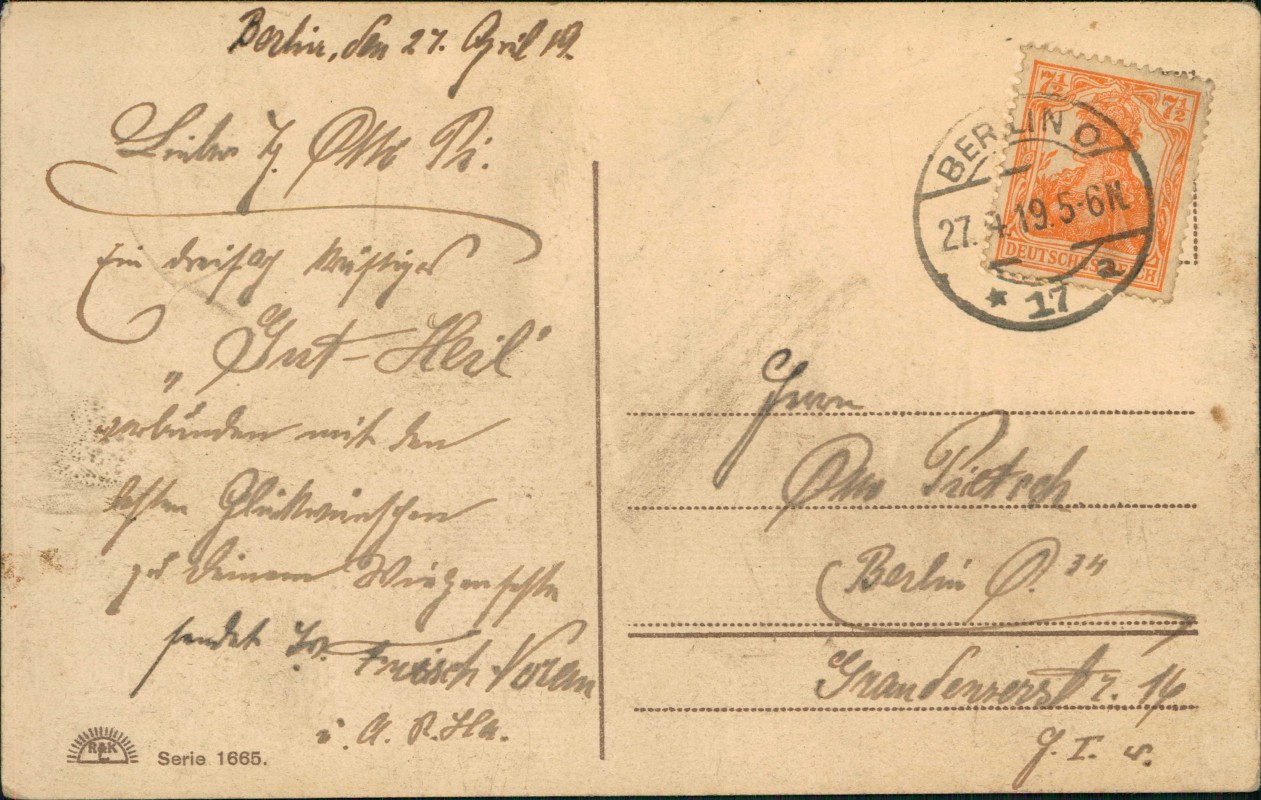 Berlin, den 27. April 19.
Lieber Tz. Otto Pi.
Ein dreifach kräftiges
„Gut-Heil"
verbunden mit den
besten Glückwünschen
zu deinem Wiegenfeste
sendet
i. A. R. Ha.
R&K
L
Serie 1665.
7½ 7½
DEUTSCHES REICH
BERLIN O
27.4.19.5-6N.
* 17 a
Herrn
Otto Pietsch
Berlin O. 34
Graudenzerst r. 16